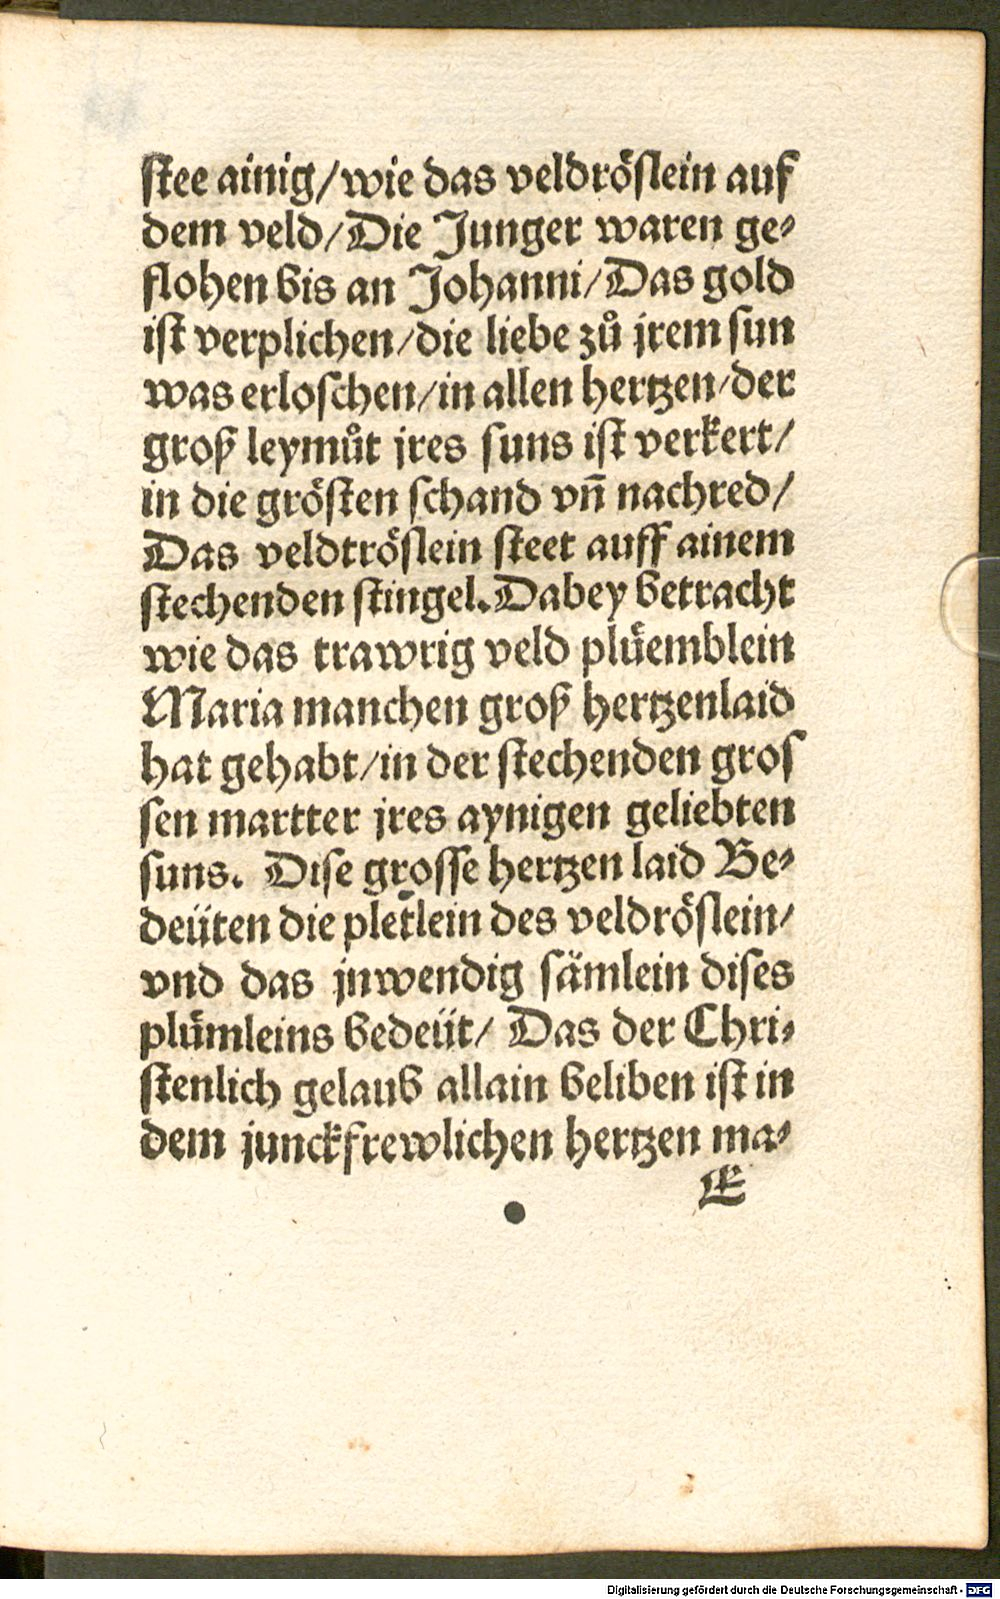 stee ainig/wie das veldröslein auf
dem veld/Die Junger waren ge⸗
flohen bis an Johanni/Das gold
ist verplichen/die liebe zů jrem sun
was erloschen/in allen hertzen/der
groß leymůt jres suns ist verkert/
in die grösten schand vn̄ nachred/
Das veldtröslein steet auff ainem
stechenden stingel. Dabey betracht
wie das trawrig veld plüemblein
Maria manchen groß hertzenlaid
hat gehabt/in der stechenden gros
sen martter jres aynigen geliebten
suns. Dise grosse hertzen laid Be⸗
deüten die pletlein des veldröslein/
vnd das jnwendig sämlein dises
plümleins bedeüt/ Das der Chri⸗
stenlich gelaub allain beliben ist in
dem junckfrewlichen hertzen ma⸗
E
Digitalisierung gefördert durch die Deutsche Forschungsgemeinschaft - DFG